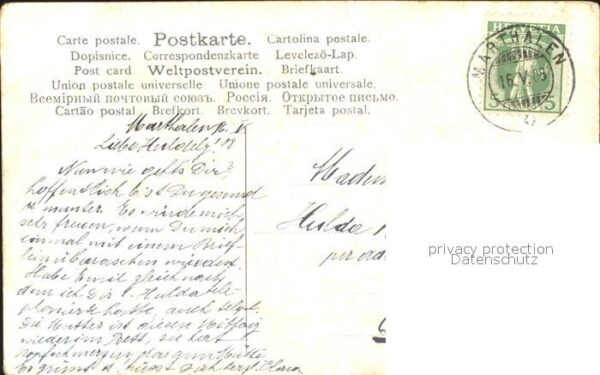 Carte postale. Postkarte. Cartolina postale.
Dopisnice. Correspondenzkarte Levelező-Lap.
Post card Weltpostverein. Briefkaart.
Union postale universelle Unione postale universale.
Всемірный почтовый союзъ. Россія. Открытое письмо.
Cartão postal. Brefkort. Brevkort. Tarjeta postal.
HELVETIA
MARTHALEN
5 5
Marthalen
Liebe
Nun wie gehts Dir?
Hoffentlich bist Du gesund
& munter. Es würde mich
sehr freuen, wenn Du mich
einmal mit einem Brief-
lein überraschen würdest.
Habe Emil gleich nach
dem ich Dir
hatte, auch
Die Mutter ist diesen
wieder im Bett, sie hat

Es grüsst & küsst Clara
Madem
Hulda
per
privacy protection
Datenschutz